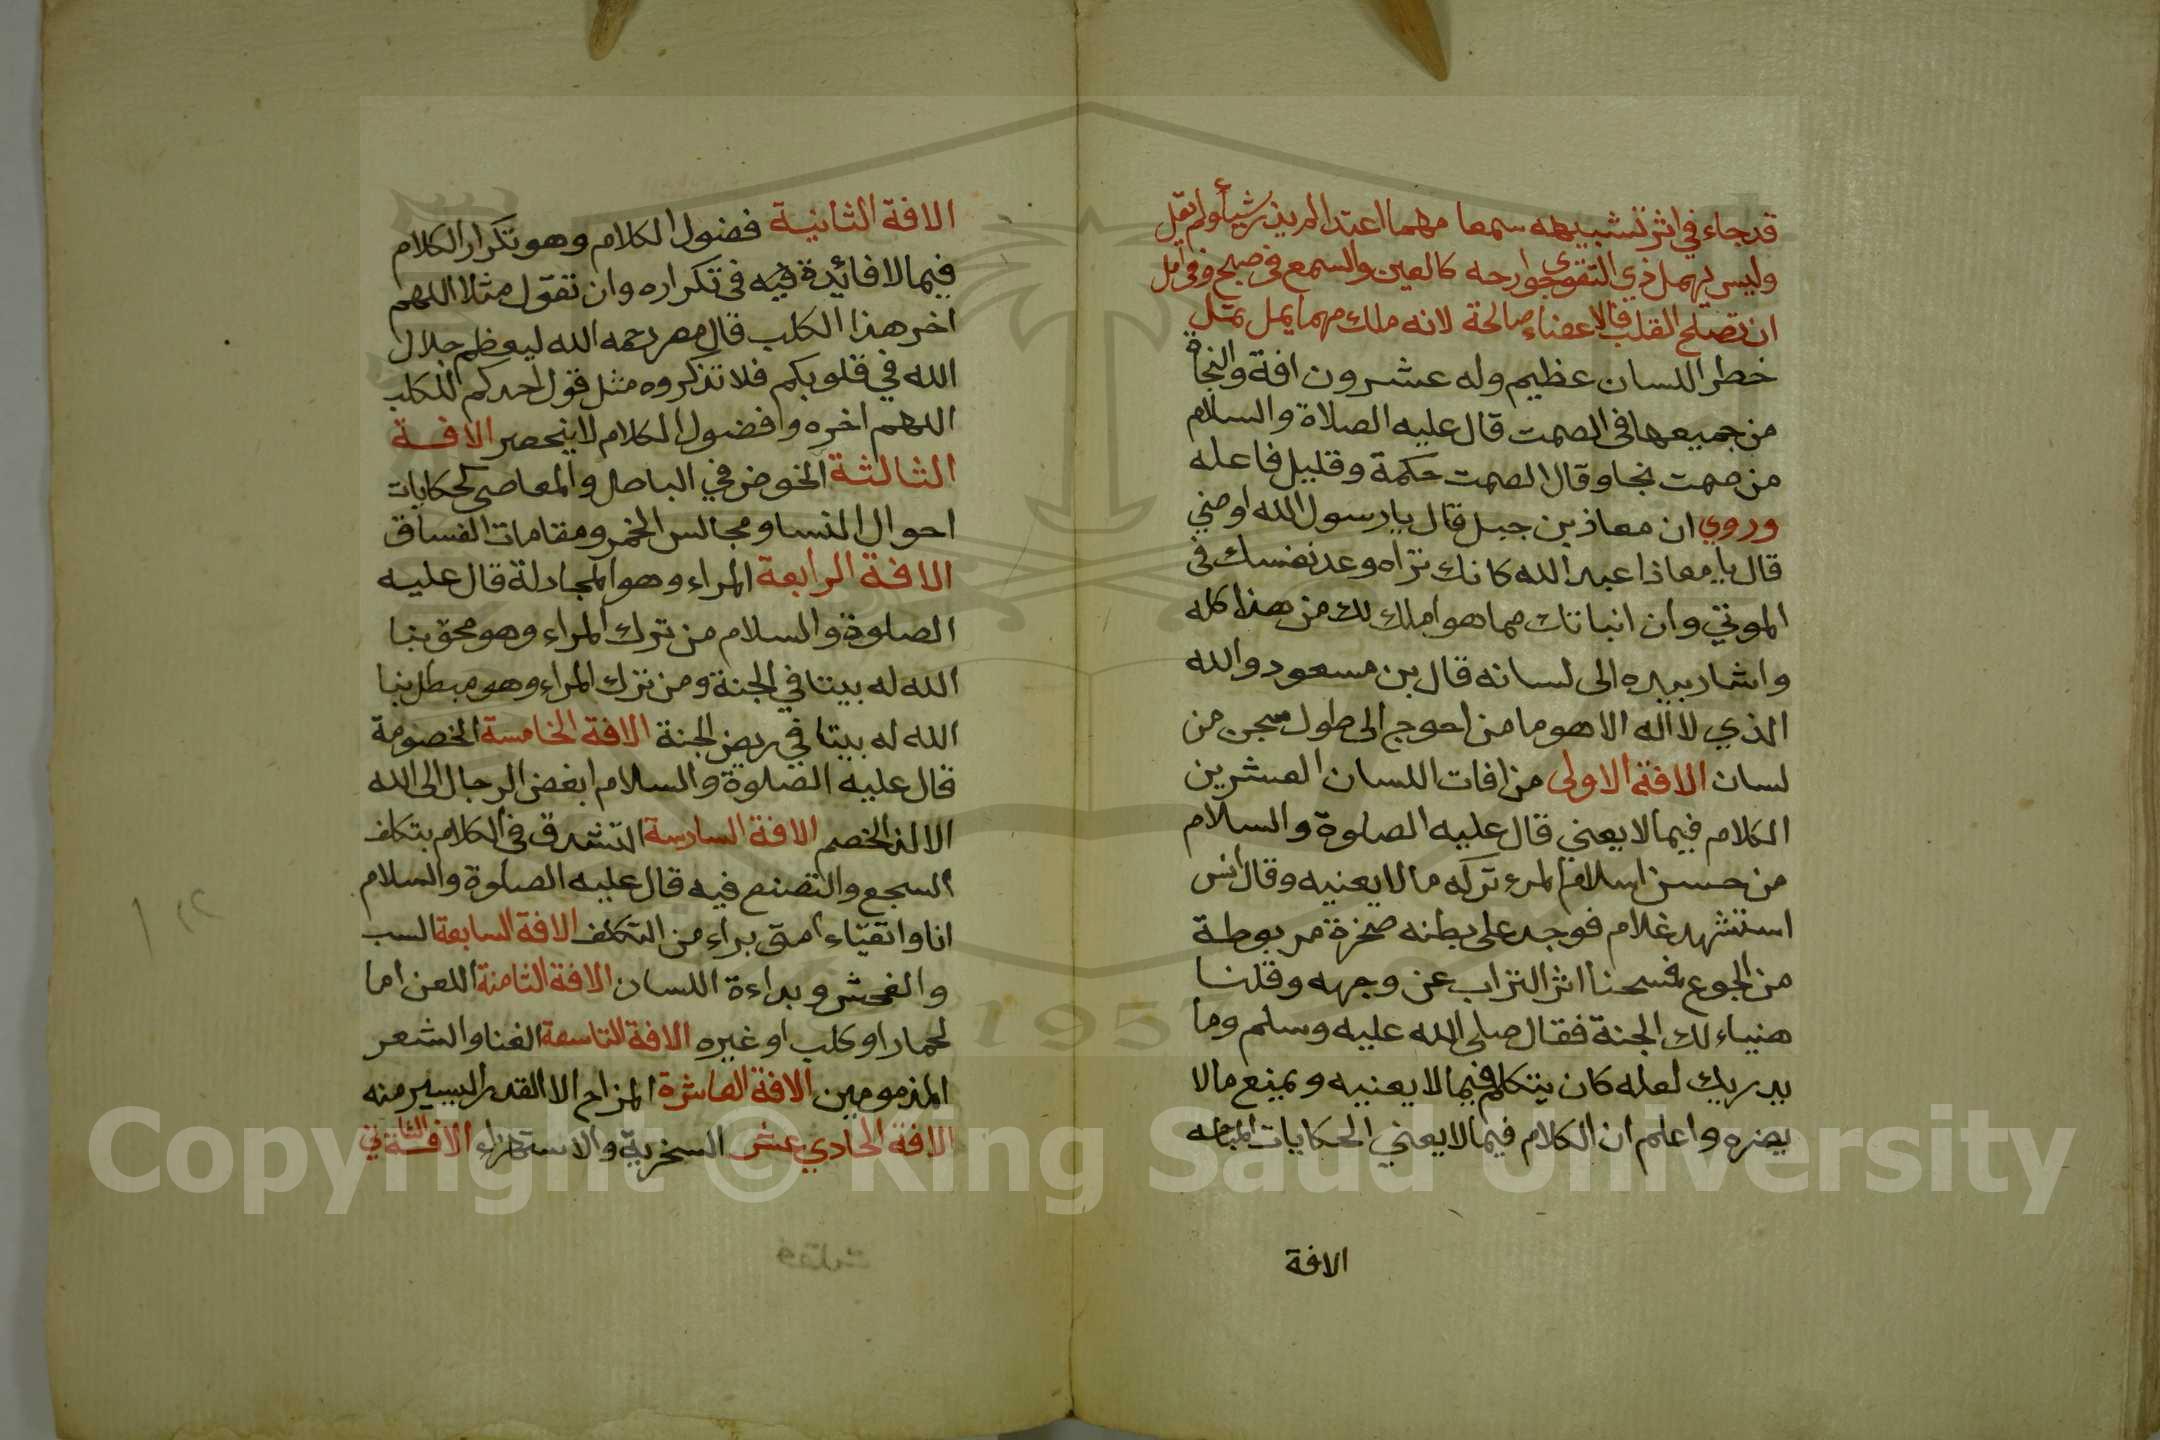 قد جاء في اثر تشبيهه سمعا مهما اعتدا لم يذر شيأ ولم يقل
وليس يهمل ذي التقوى جوارحه كالعين والسمع في صبح وفي اصل
ان تصلح القلب فالاعضاء صالحة لانه ملك مهما يمل تمل
خطر اللسان عظيم وله عشرون افة والنجاة
من جميعها في الصمت قال عليه الصلاة والسلام
من صمت نجا وقال الصمت حكمة وقليل فاعله
وروي ان معاذ بن جبل قال يا رسول الله اوصني
قال يا معاذ اعبد الله كانك تراه وعد نفسك في
الموتي وان انباتك مما هو املك لك من هذا كله
واشار بيده الى لسانه قال بن مسعود والله
الذي لا اله الا هو ما من احوج الى طول سجن من
لسان الافة الاولى من افات اللسان العشرين
الكلام فيما لا يعني قال عليه الصلوة والسلام
من حسن اسلام المرء تركه ما لا يعنيه وقال انس
استشهد غلام فوجد على بطنه صخرة مربوطة
من الجوع فمسحنا اثر التراب عن وجهه وقلنا
هنياء لك الجنة فقال صلى الله عليه وسلم وما
يدريك لعله كان يتكلم فيما لا يعنيه ويمنع ما لا
يضره واعلم ان الكلام فيما لا يعني الحكايات المباحه
الافة
الافة الثانية فضول الكلام وهو تكرار الكلام
فيما لا فائدة فيه في تكراره وان تقول مثلا اللهم
اخر هذا الكلب قال رحمه الله ليعظم جلال
الله في قلوبكم فلا تذكروه مثل قول احدكم للكلب
اللهم اخره وافضول الكلام لا ينحصر الافة
الثالثة الخوض في الباطل والمعاصي كحكايات
احوال النسا ومجالس الخمر ومقامات الفساق
الافة الرابعة المراء وهو المجادلة قال عليه
الصلوة والسلام من ترك المراء وهو محق بنا
الله له بيتا في الجنة ومن ترك المراء وهو مبطل بنا
الله له بيتا في ربض الجنة الافة الخامسة الخصومة
قال عليه الصلوة والسلام ابغض الرجال الى الله
الالد الخصم الافة السادسة التشدق في الكلام بتكلف
السجع والتصنع فيه قال عليه الصلوة والسلام
انا واتقياء امتي براء من التكلف الافة السابعة السب
والفحش وبداءة اللسان الافة الثامنة اللعن اما
لحمار او كلب او غيره الافة التاسعة الغنا والشعر
المذمومين الافة العاشرة المزاح الا القدر اليسير منه
الافة الحادي عشر السخرية والاستهزاء الافة الثاني
Copyright © King Saud University
1957